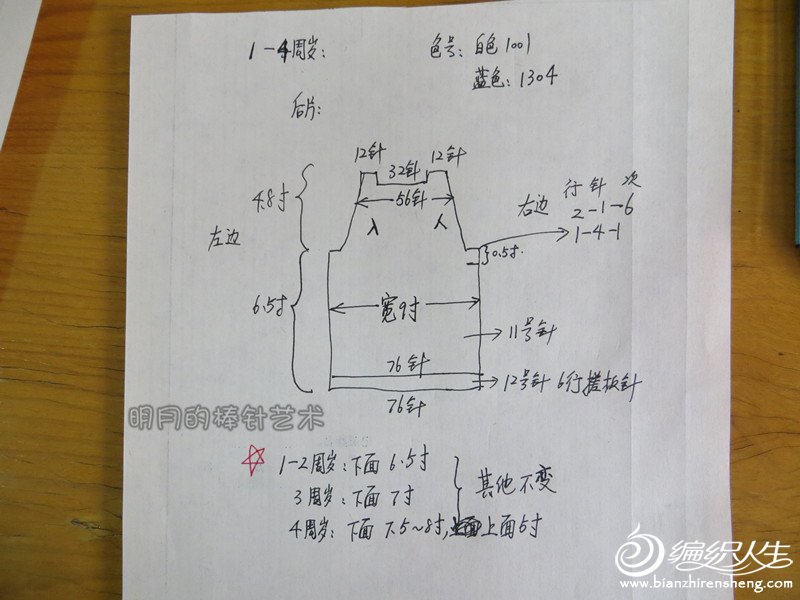 1-4周岁:
色号: 白色1001
蓝色: 1304
后片:
12针
32针
12针
56针
4.8寸
左边
入
人
右边
行 针 次
2-1-6
1-4-1
0.5寸
6.5寸
宽9寸
11号针
76针
12号针 6行搓板针
76针
明月的棒针艺术
1-2周岁: 下面 6.5寸
3周岁: 下面 7寸
其他不变
4周岁: 下面 7.5~8寸, 上面5寸
编织人生
www.bianzhirensheng.com